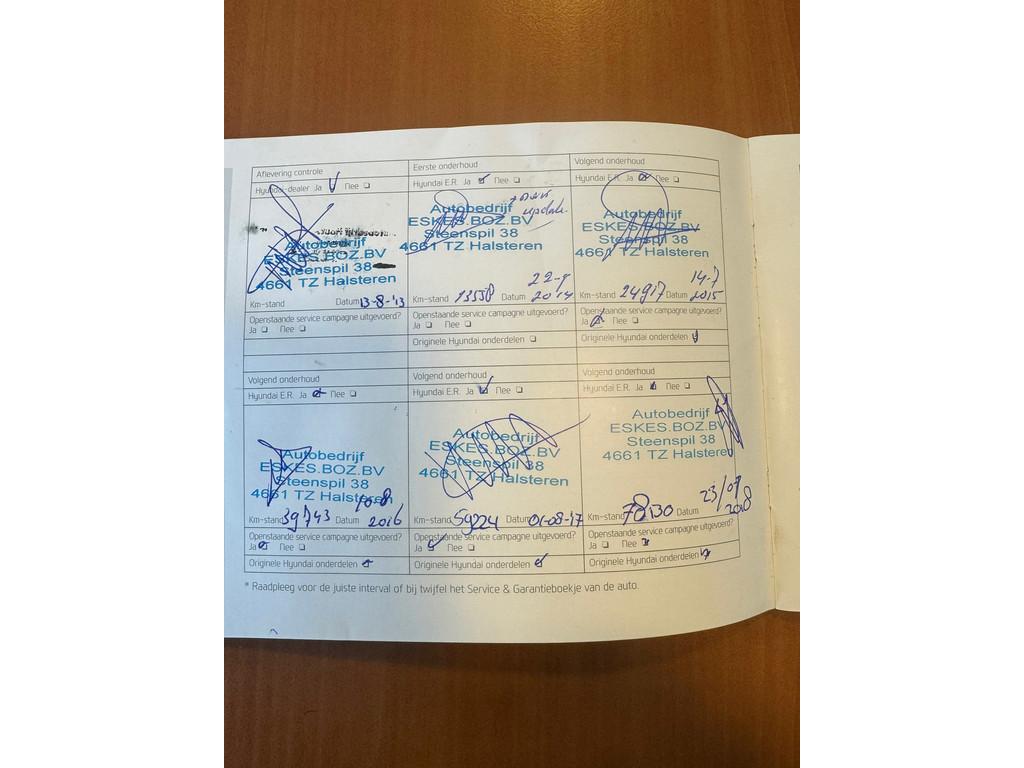 Aflevering controle
Hyundai-dealer Ja Nee
Autobedrijf
ESKES.BOZ.BV
Steenspil 38
4661 TZ Halsteren
Km-stand Datum 13-8-'13
Openstaande service campagne uitgevoerd?
Ja Nee
Eerste onderhoud
Hyundai E.R. Ja Nee
update
Autobedrijf
ESKES.BOZ.BV
Steenspil 38
4661 TZ Halsteren
Km-stand 13558 Datum 2014
Openstaande service campagne uitgevoerd?
Ja Nee
Originele Hyundai onderdelen
Volgend onderhoud
Hyundai E.R. Ja Nee
Autobedrijf
ESKES.BOZ.BV
Steenspil 38
4661 TZ Halsteren
Km-stand 24917 Datum 14-7 2015
Openstaande service campagne uitgevoerd?
Ja Nee
Originele Hyundai onderdelen
Volgend onderhoud
Hyundai E.R. Ja Nee
Autobedrijf
ESKES.BOZ.BV
Steenspil 38
4661 TZ Halsteren
Km-stand 39743 Datum 10-8 2016
Openstaande service campagne uitgevoerd?
Ja Nee
Originele Hyundai onderdelen
Volgend onderhoud
Hyundai E.R. Ja Nee
Autobedrijf
ESKES.BOZ.BV
Steenspil 38
4661 TZ Halsteren
Km-stand 59224 Datum 01-08-'17
Openstaande service campagne uitgevoerd?
Ja Nee
Originele Hyundai onderdelen
Volgend onderhoud
Hyundai E.R. Ja Nee
Autobedrijf
ESKES.BOZ.BV
Steenspil 38
4661 TZ Halsteren
Km-stand 78130 Datum 23/07 2018
Openstaande service campagne uitgevoerd?
Ja Nee
Originele Hyundai onderdelen
* Raadpleeg voor de juiste interval of bij twijfel het Service & Garantieboekje van de auto.